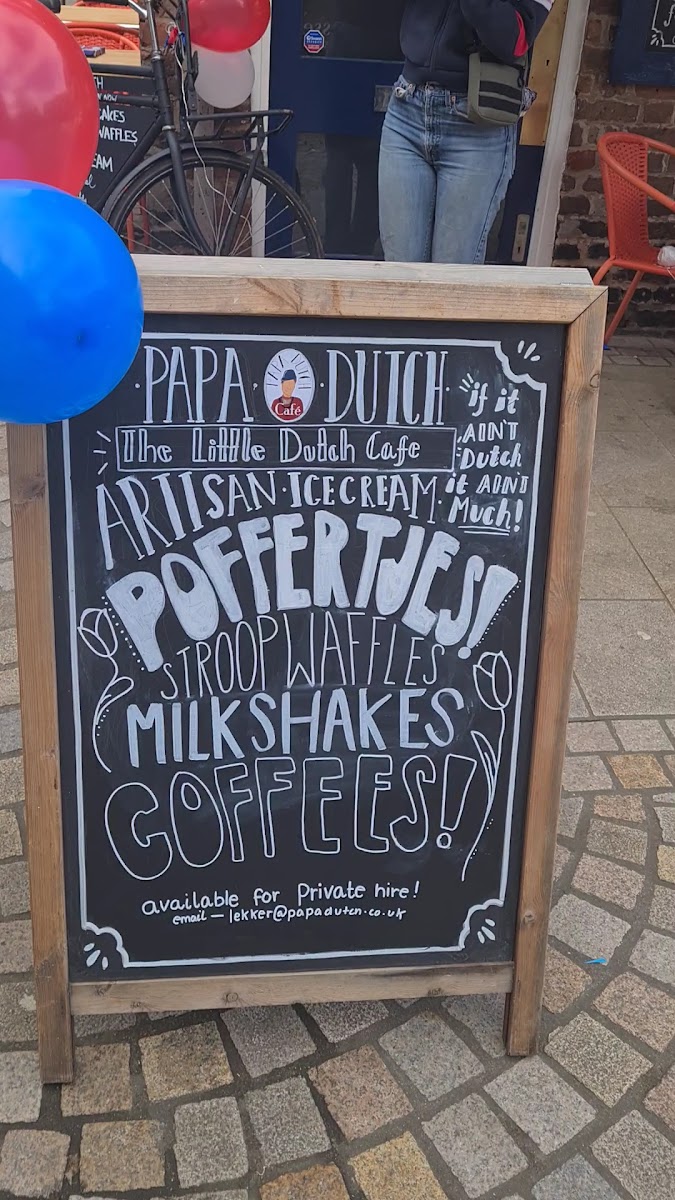 ·PAPA· Café ·DUTCH·
The Little Dutch Cafe
if it
AIN'T
Dutch
it AIN'T
Much!
ARTISAN·ICECREAM·
POFFERTJES!
STROOPWAFFLES
MILKSHAKES
COFFEES!
available for Private hire!
email — lekker@papadutch.co.uk
CAKES
WAFFLES